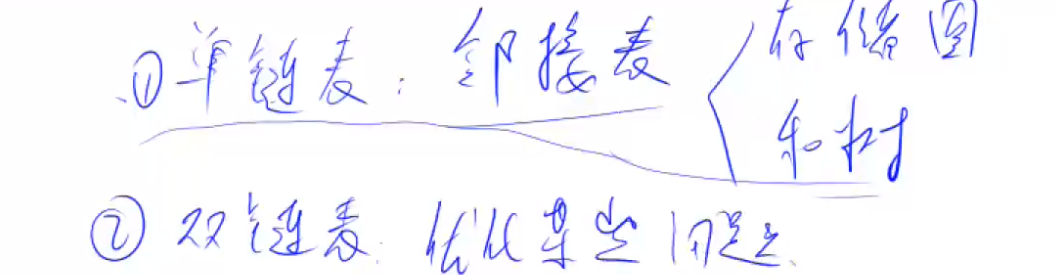 ①单链表：邻接表 存储图
和树
②双链表：优化某些问题